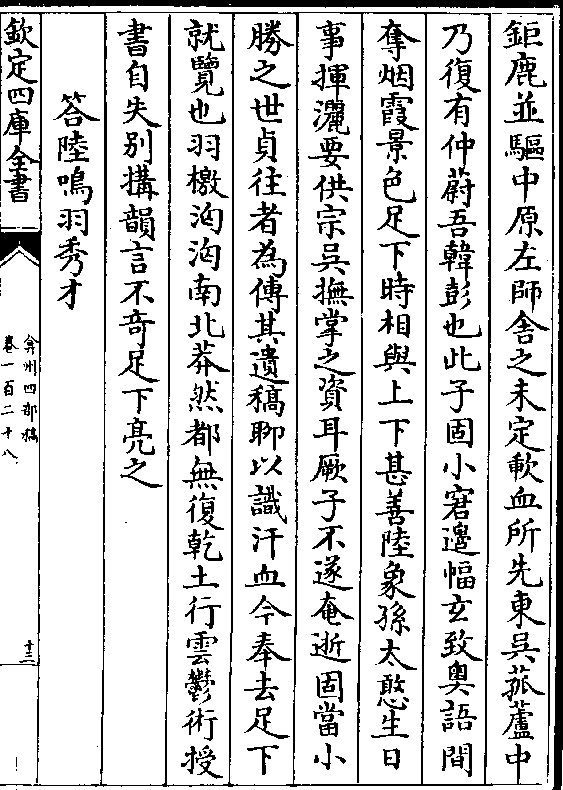 鉅鹿並驅中原左師舍之未定軟血所先東吳菰蘆中
乃復有仲蔚吾韓彭也此子固小窘邊幅玄致奧語間
奪烟霞景色足下時相與上下甚善陸象孫太憨生日
事揮灑要供宗吳撫掌之資耳厥子不遂奄逝固當小
勝之世貞往者為傳其遺稿聊以識汗血今奉去足下
就覽也羽檄洶洶南北莽然都無復乾土行雲鬱術授
書自失别搆韻言不奇足下亮之
答陸鳴羽秀才
欽定四庫全書
弇州四部稿
卷一百二十八
十三